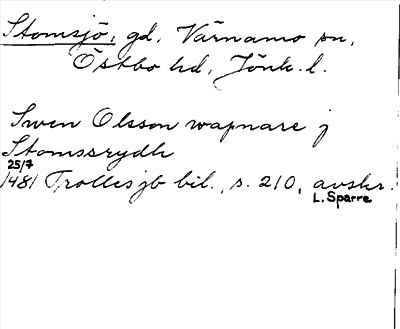 Stomsjö, gd. Värnamo sn,
Östbo hd, Jönk. l.
Swen Olsson wapnare j
Stomssrydh
25/7
1481 Trolles jb bil., s. 210, avskr.
L. Sparre